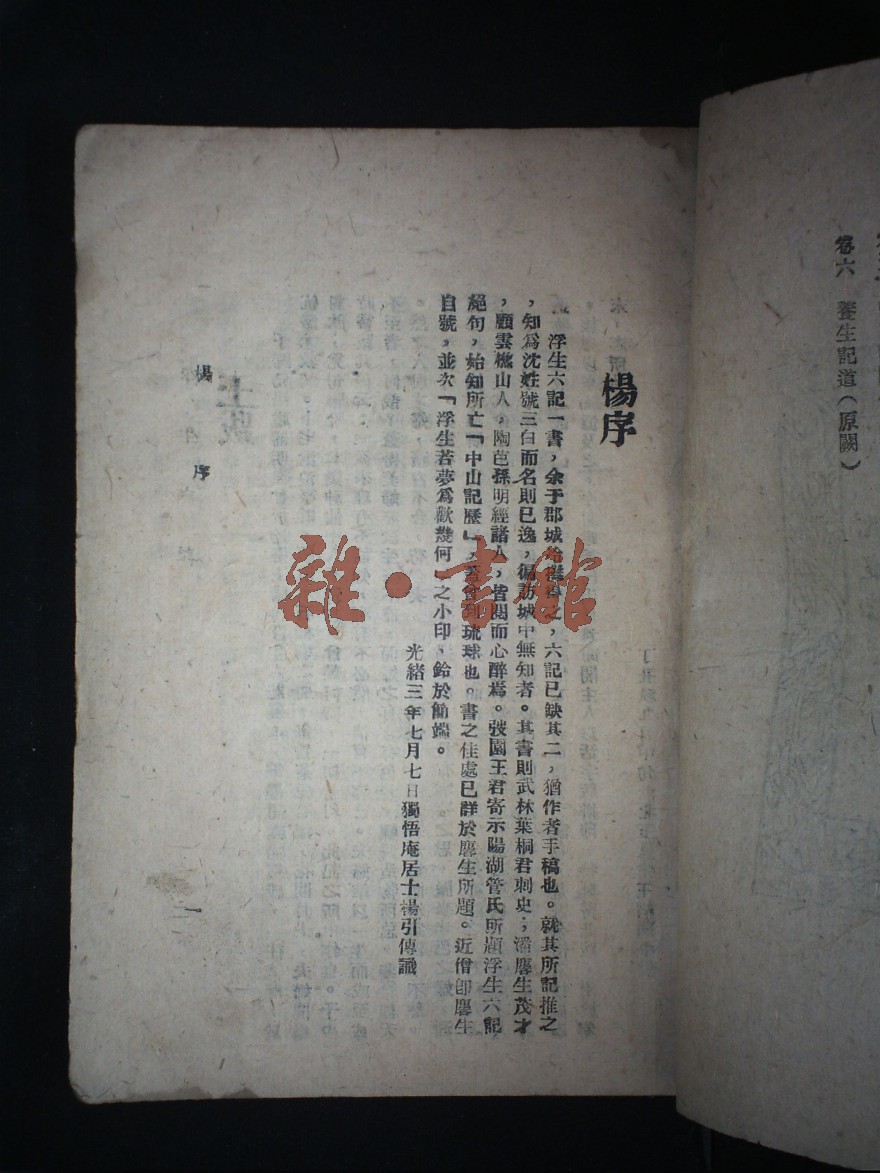 卷六　養生記道（原闕）
楊序
浮生六記一書，余于郡城冷攤得之，六記已缺其二，猶作者手稿也。就其所記推之
，知為沈姓號三白而名則已逸，徧訪城中無知者。其書則武林葉桐君刺史，潘麐生茂才
，顧雲樵山人，陶芑孫明經諸人，皆閱而心醉焉。弢園王君寄示陽湖管氏所題浮生六記
絕句，始知所亡「中山記歷」，蓋曾到琉球也。書之佳處已詳於麐生所題。近僧卽麐生
自號，並次「浮生若夢為歡幾何」之小印，鈐於簡端。
光緒三年七月七日獨悟庵居士楊引傳識
楊　序
一
雜·書館